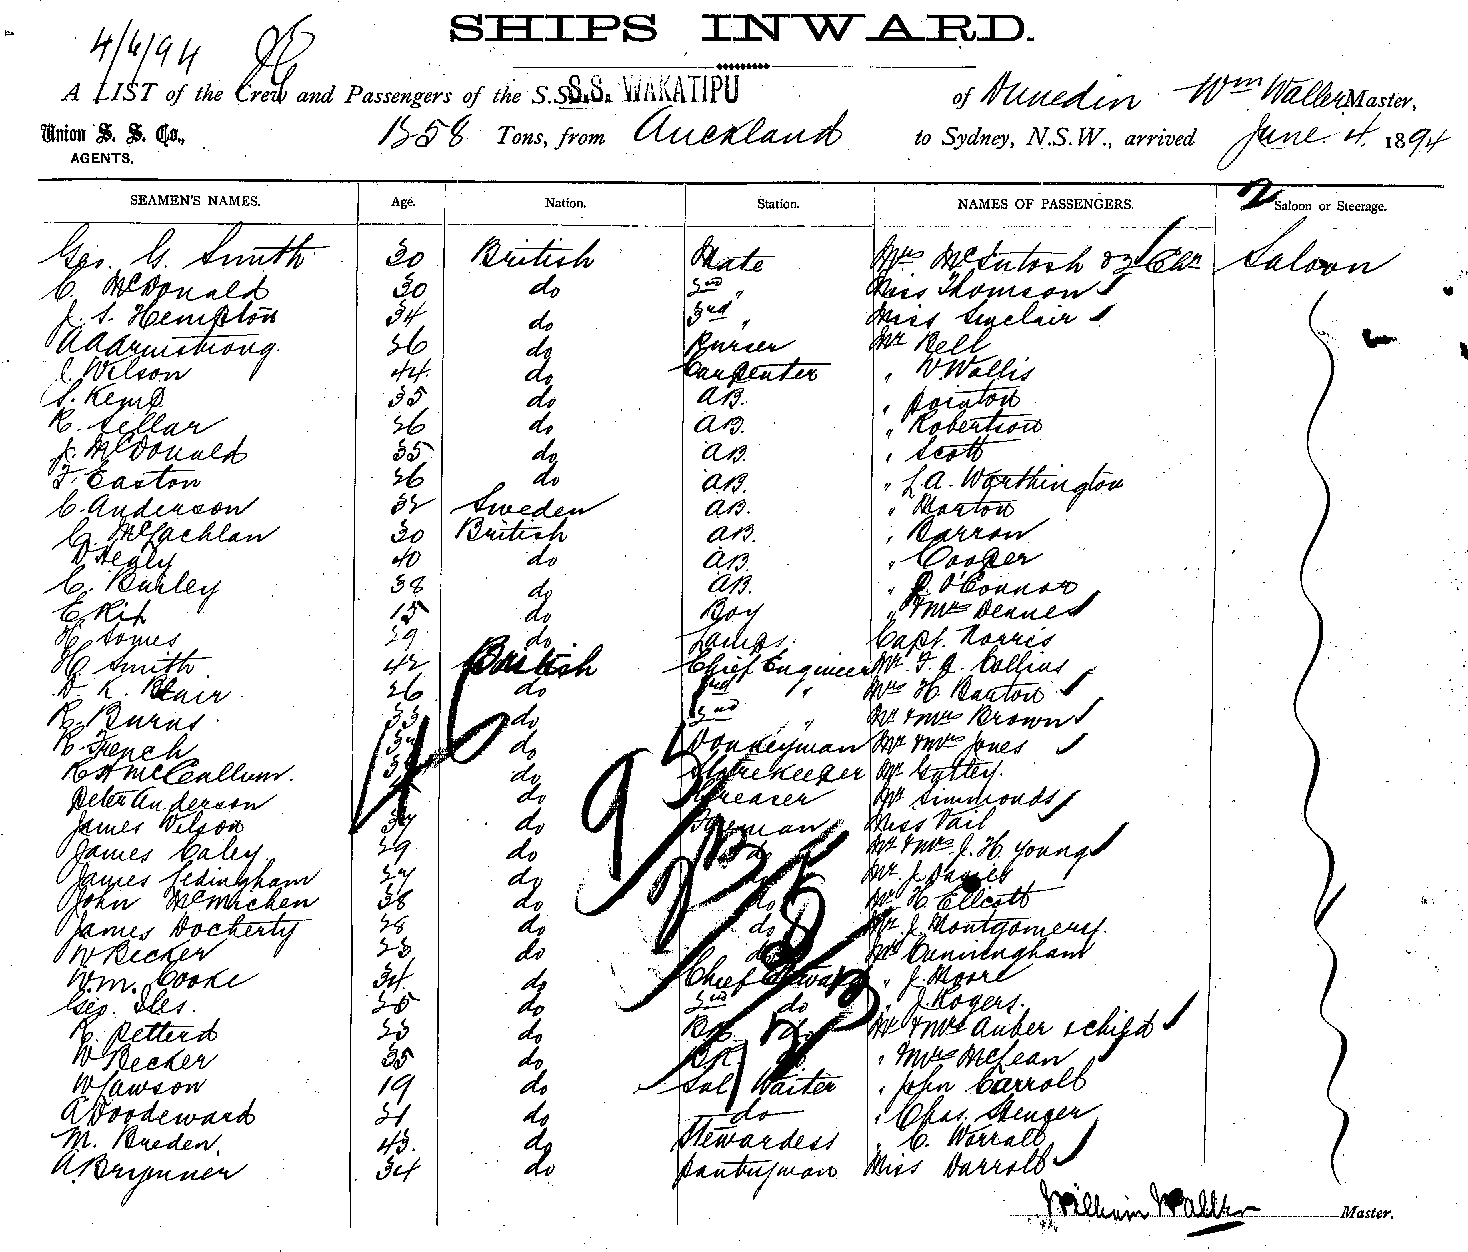 SHIPS INWARD.
4/6/94
A LIST of the Crew and Passengers of the S.S. S.S. WAKATIPU of Dunedin Wm Waller Master,
Union S. S. Co., 1358 Tons, from Auckland to Sydney, N.S.W., arrived June 4 1894
AGENTS.
SEAMEN'S NAMES. Age. Nation. Station. NAMES OF PASSENGERS. 2 Saloon or Steerage.
Geo. G. Smith 30 British Mate Mrs McIntosh & 2 Chn Saloon
C. McDonald 30 do 2nd " Miss Thomson
J. S. Hempton 34 do 3rd " Miss Sinclair
A Armstrong 26 do Purser Mr Bell
J. Wilson 44 do Carpenter " W. Wallis
S. Kemp 35 do AB. "
R. Sellar 26 do AB. " Robertson
J. McDonald 35 do AB. " Scott
F. Easton 26 do AB. " L. A. Worthington
C. Anderson 32 Sweden AB. " Horton
G. McLachlan 30 British AB. " Barron
D Healy 40 do AB. " Cooper
C. Burley 38 do AB. " O'Connor
E. Rix 15 do Boy " & Mrs Dennes
H. Somes 29 do Lamps. Capt. Norris
H Smith 42 British Chief Engineer Mr. F. A. Collins
D. K. Blair 26 do 2nd " Mrs H Barton
R. Burns 33 do 3rd " Mr & Mrs Brown
R. French do Donkeyman Mr & Mrs Jones
R H McCallum. do Storekeeper Mr
Peter Anderson do Greaser Mr Simmonds
James Wilson 37 do Fireman Miss Vail
James Caley 29 do do Mr & Mrs J. H. Young
James 27 do do Mr. J Davies
John McMichen 38 do do Mr H Ellcott
James Docherty 28 do do Mr J Montgomery.
W Becker 23 do do Mr Cunningham
Wm. Cooke 34 do Chief Steward " J. Moore
Geo. Iles. 25 do 2nd do " J. Rogers.
R. Petterd 23 do do Mr & Mrs Auber & child
W Becker 35 do " & Mrs McLean
W Lawson 19 do Sal. Waiter " John Carroll
A Woodeward 21 do do " Chas. Stenger
M. Breden. 43. do Stewardess " C. Worrall
A. Brymner 34 do Pantryman Miss Darroll
William Waller Master.